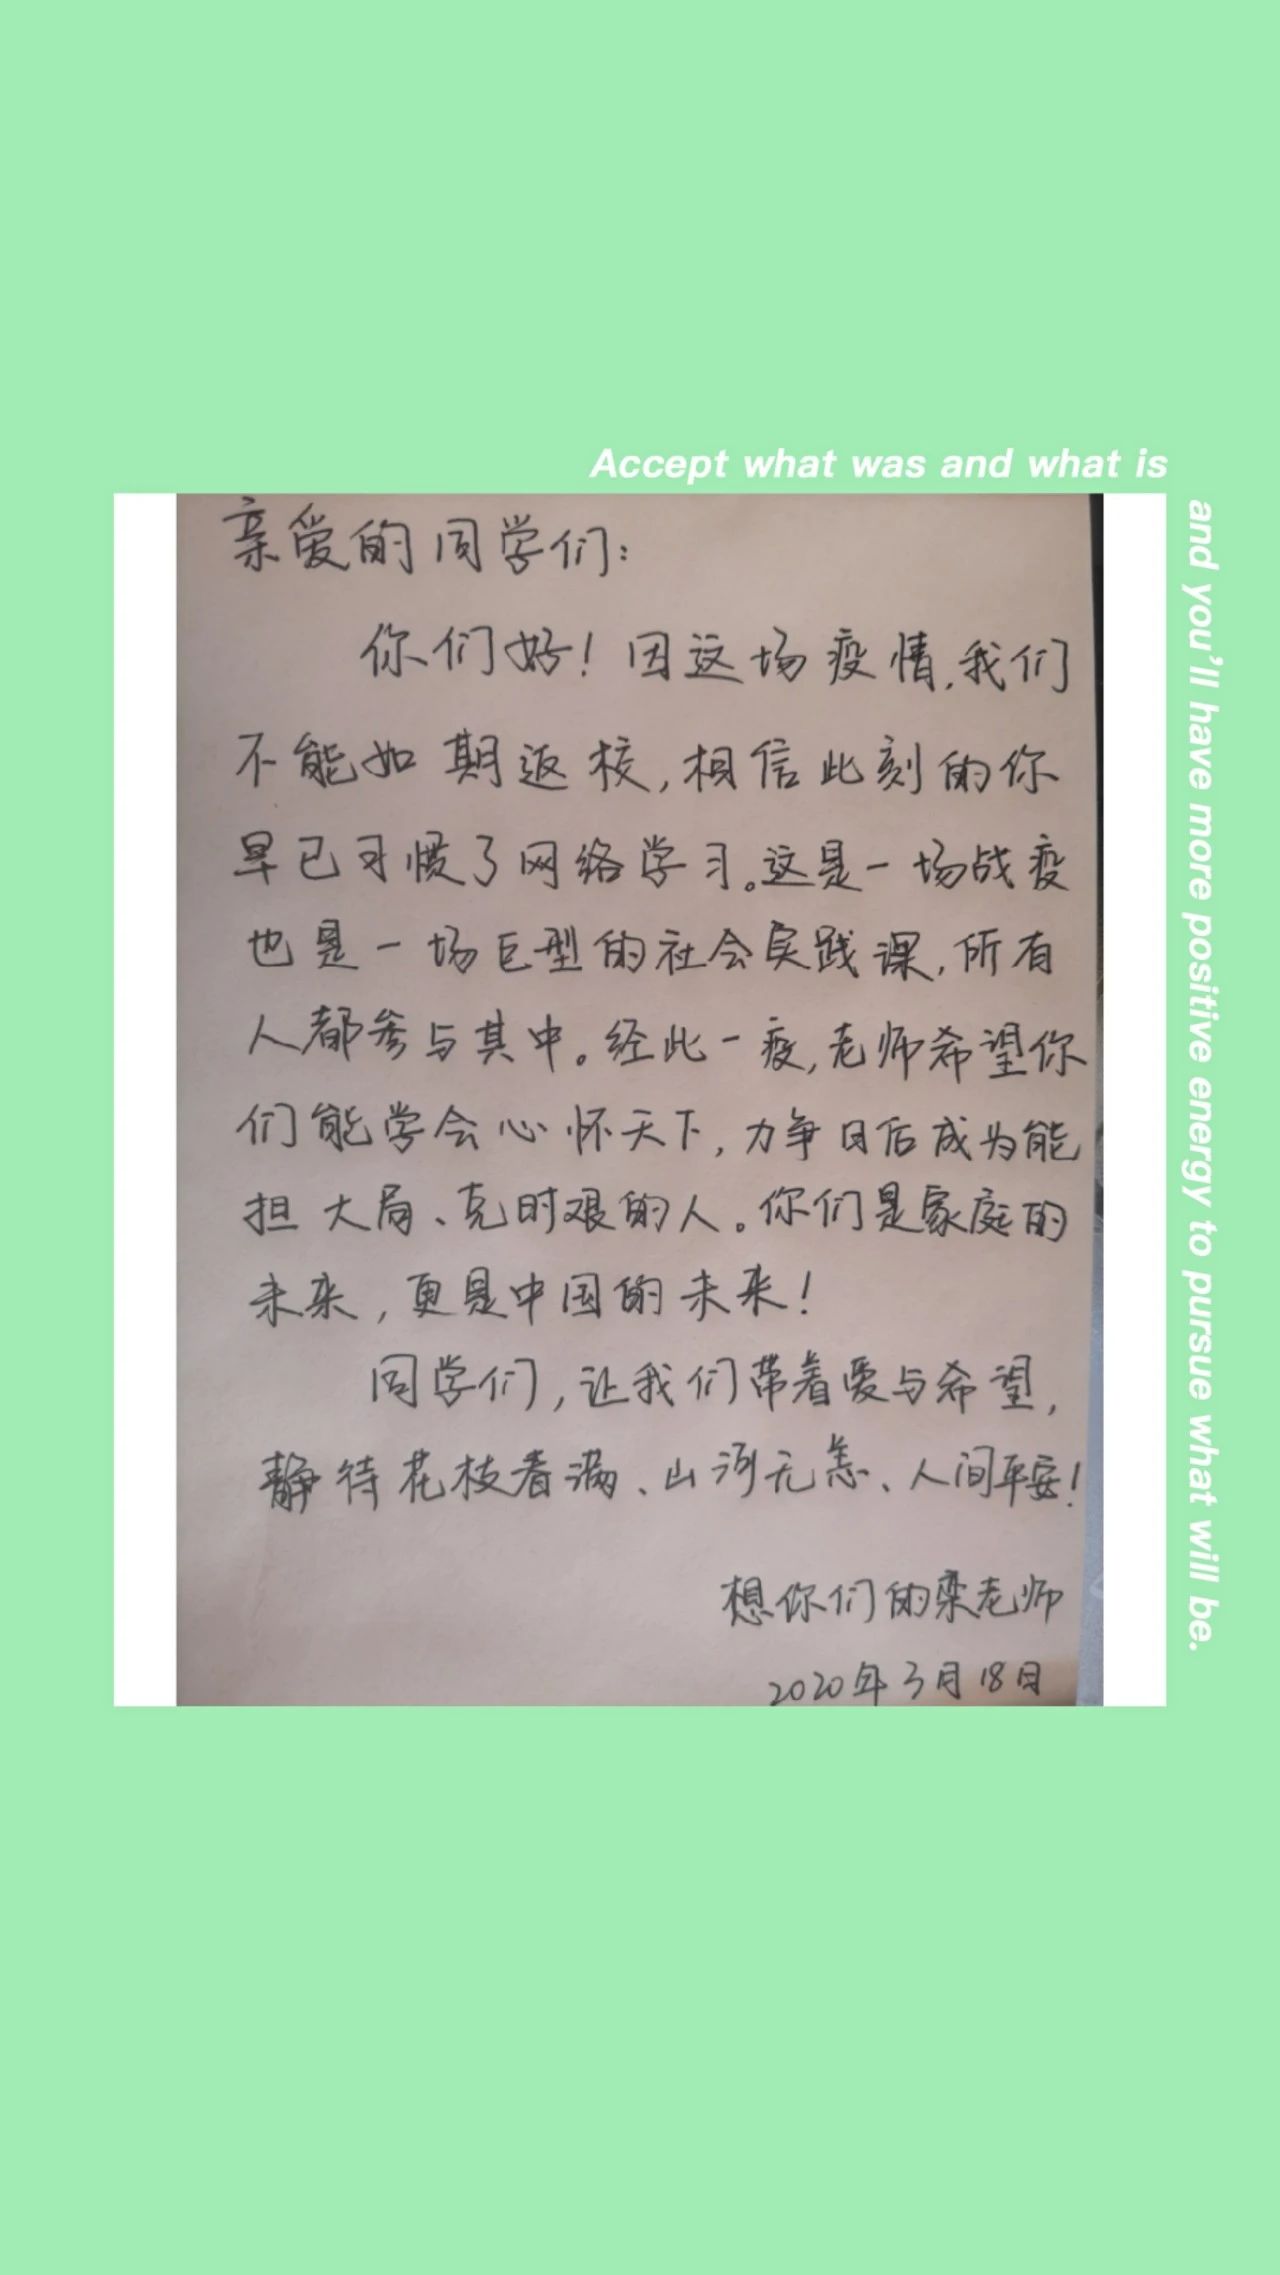 Accept what was and what is
and you'll have more positive energy to pursue what will be.
亲爱的同学们：
你们好！因这场疫情，我们
不能如期返校，相信此刻的你
早已习惯了网络学习。这是一场战疫
也是一场巨型的社会实践课，所有
人都参与其中。经此一疫，老师希望你
们能学会心怀天下，力争日后成为能
担大局、克时艰的人。你们是家庭的
未来，更是中国的未来！
同学们，让我们带着爱与希望，
静待花枝春满、山河无恙、人间平安！
想你们的栾老师
2020年3月18日